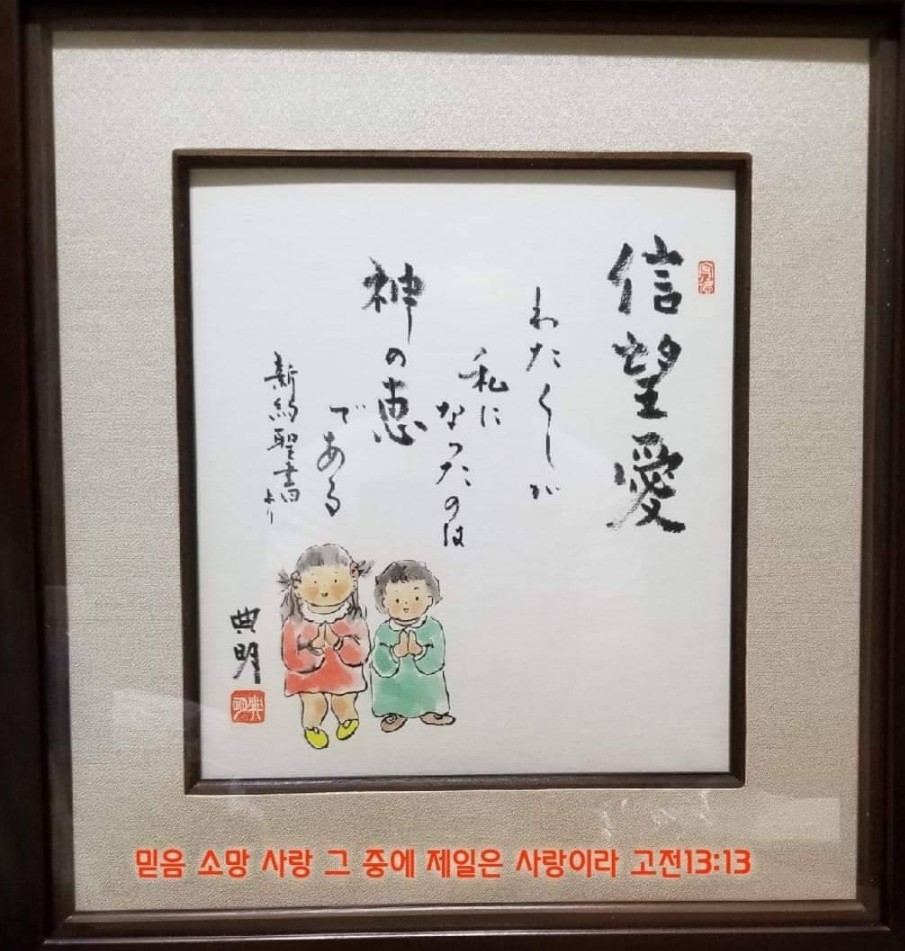 信望愛
わたくしが
私に
なったのは
神の恵
である
新約聖書より
典明
믿음 소망 사랑 그 중에 제일은 사랑이라 고전13:13